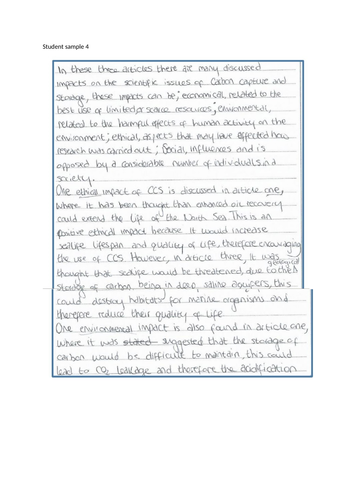 Student sample 4
In these three articles there are many discussed
impacts on the scientific issues of Carbon capture and
storage, these impacts can be; economical, related to the
best use of limited/or scarce resources; environmental,
related to the harmful effects of human activity on the
environment; ethical, aspects that may have affected how
research was carried out; Social, influences and is
opposed by a considerable number of individuals in a
society.
One ethical impact of CCS is discussed in article one,
where it has been thought than enhanced oil recovery
could extend the life of the North Sea. This is an
positive ethical impact because it would increase
sealife lifespan and quality of life, therefore encouraging
the use of CCS. However, in article three, it was
thought that sealife would be threatened, due to the geological
storage of carbon, being in deep, saline aquifers, this
could destroy habitats for marine organisms and
therefore reduce their quality of life
One environmental impact is also found in article one,
where it was stated suggested that the storage of
carbon would be difficult to maintain, this could
lead to CO2 leakage and therefore the acidification